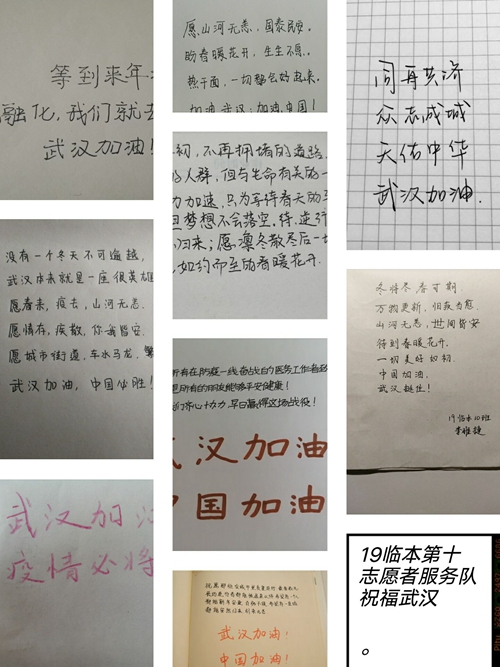 等到来年
融化,我们就去
武汉加油!
没有一个冬天不可逾越,
武汉本来就是一座很英雄
愿春来,疫去,山河无恙.
愿情存,疾散,你我皆安.
愿城市街道,车水马龙,繁
武汉加油,中国必胜!
武汉加油
疫情必将
愿山河无恙,国泰民安。
盼春暖花开,生生不息。
热干面,一切都会好起来.
加油武汉;加油,中国!
初,不再拥堵的道路,
的人群,但与生命有关的一
力加速,只为等待春天的
但梦想不会落空.待逆行
归来;愿凛冬散尽后一
如约而至的春暖花开.
所有在防疫一线奋战的医务工作者致
愿所有的同胞能够平安健康!
我们齐心协力,早日赢得这场战役!
武汉加油
中国加油
武汉加油!
中国加油!
同舟共济
众志成城
天佑中华
武汉加油.
冬将尽 春可期
万物更新,旧疾当愈
山河无恙,世间皆安
待到春暖花开
一切美好如初
中国加油,
武汉挺住!
19临本10班
李雅婕
19临本第十
志愿者服务队
祝福武汉
。